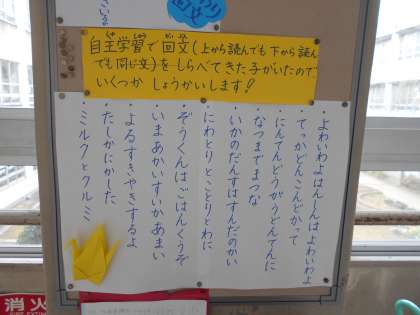 自主学習で回文(上から読んでも下から読ん
でも同じ文)をしらべてきた子がいたので
いくつか しょうかいします!
・よわいわよはんしんはよわいわよ
・てっかどんこんどかって
・にんてんどうがうどんてんに
・なつまでまつな
・いかのだんすはすんだのかい
・にわとりとことりとわに
・ぞうくんぱごはんくうぞ
・いまあかいすいかあまい
・よるすきやきするよ
・たしかにかした
・ミルクとクルミ
回文
消火